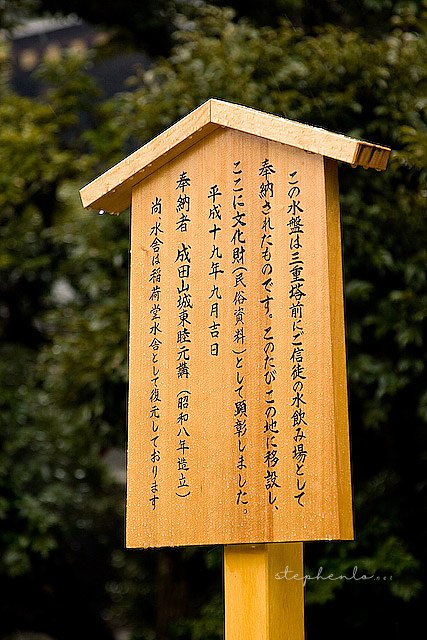 この水盤は三重塔前にご信徒の水飲み場として
奉納されたものです。このたびこの地に移設し、
ここに文化財(民俗資料)として顕彰しました。
平成十九年九月吉日
奉納者 成田山城東睦元講(昭和八年造立)
尚、水舎は稲荷堂水舎として復元しております
stephenlo.net